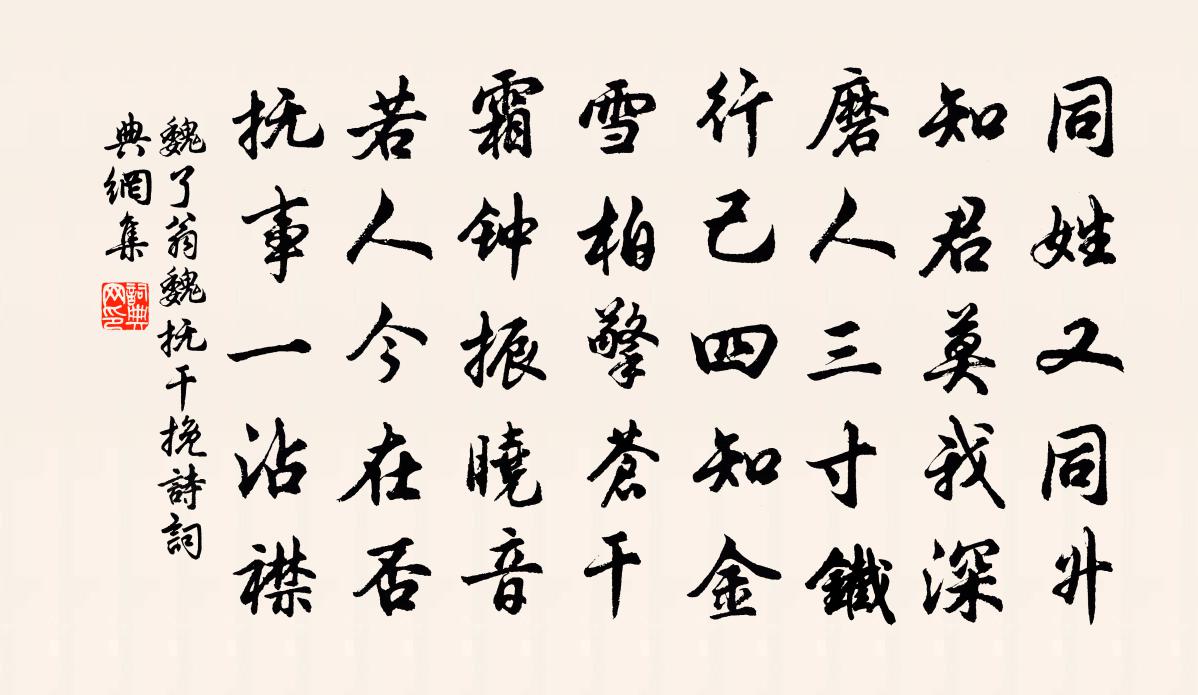 同姓又同升
知君莫我深
磨人三寸鐵
行己四知金
雪柏擎蒼干
霜钟振曉音
若人今在否
抚事一沾襟
魏了翁魏抚干挽詩詞
典網集
詞典
网印